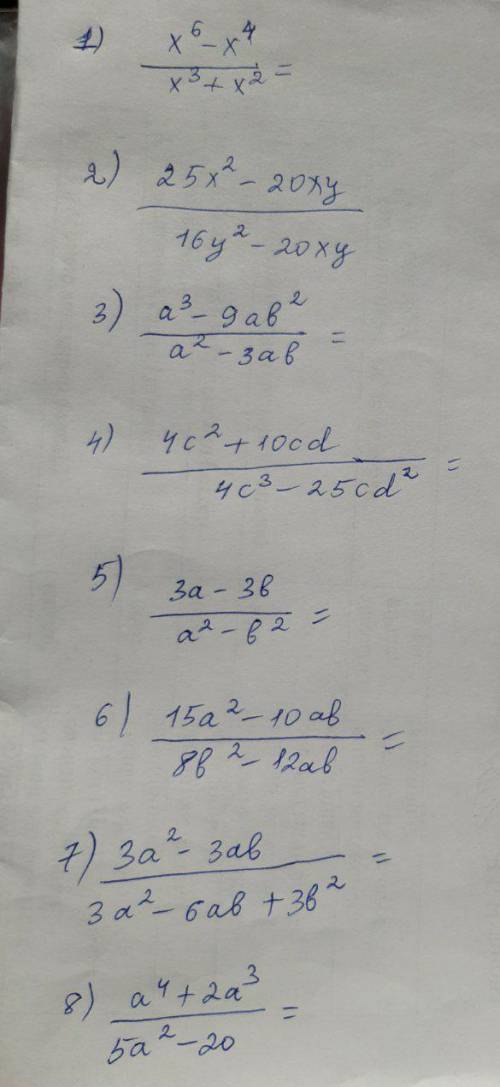 1) x⁶ - x⁴
x³ + x² =
2) 25x² - 20xy
16y² - 20xy
3) a³ - 9ab²
a² - 3ab =
4) 4c² + 10cd
4c³ - 25cd² =
5) 3a - 3b
a² - b² =
6) 15a² - 10ab
8b² - 12ab =
7) 3a² - 3ab =
3a² - 6ab + 3b²
8) a⁴ + 2a³
5a² - 20 =